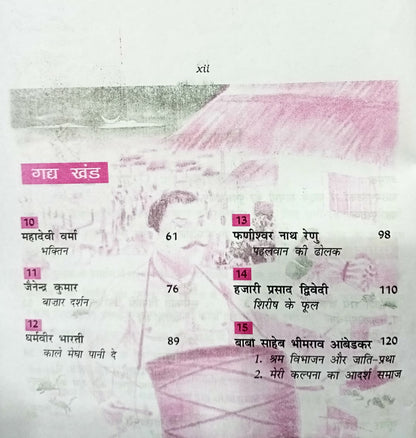 xii
गद्य खंड
10
महादेवी वर्मा 61
भक्तिन
11
जैनेन्द्र कुमार 76
बाज़ार दर्शन
12
धर्मवीर भारती 89
काले मेघा पानी दे
13
फणीश्वर नाथ रेणु 98
पहलवान की ढोलक
14
हजारी प्रसाद द्विवेदी 110
शिरीष के फूल
15
बाबा साहेब भीमराव आंबेडकर 120
1. श्रम विभाजन और जाति-प्रथा
2. मेरी कल्पना का आदर्श समाज